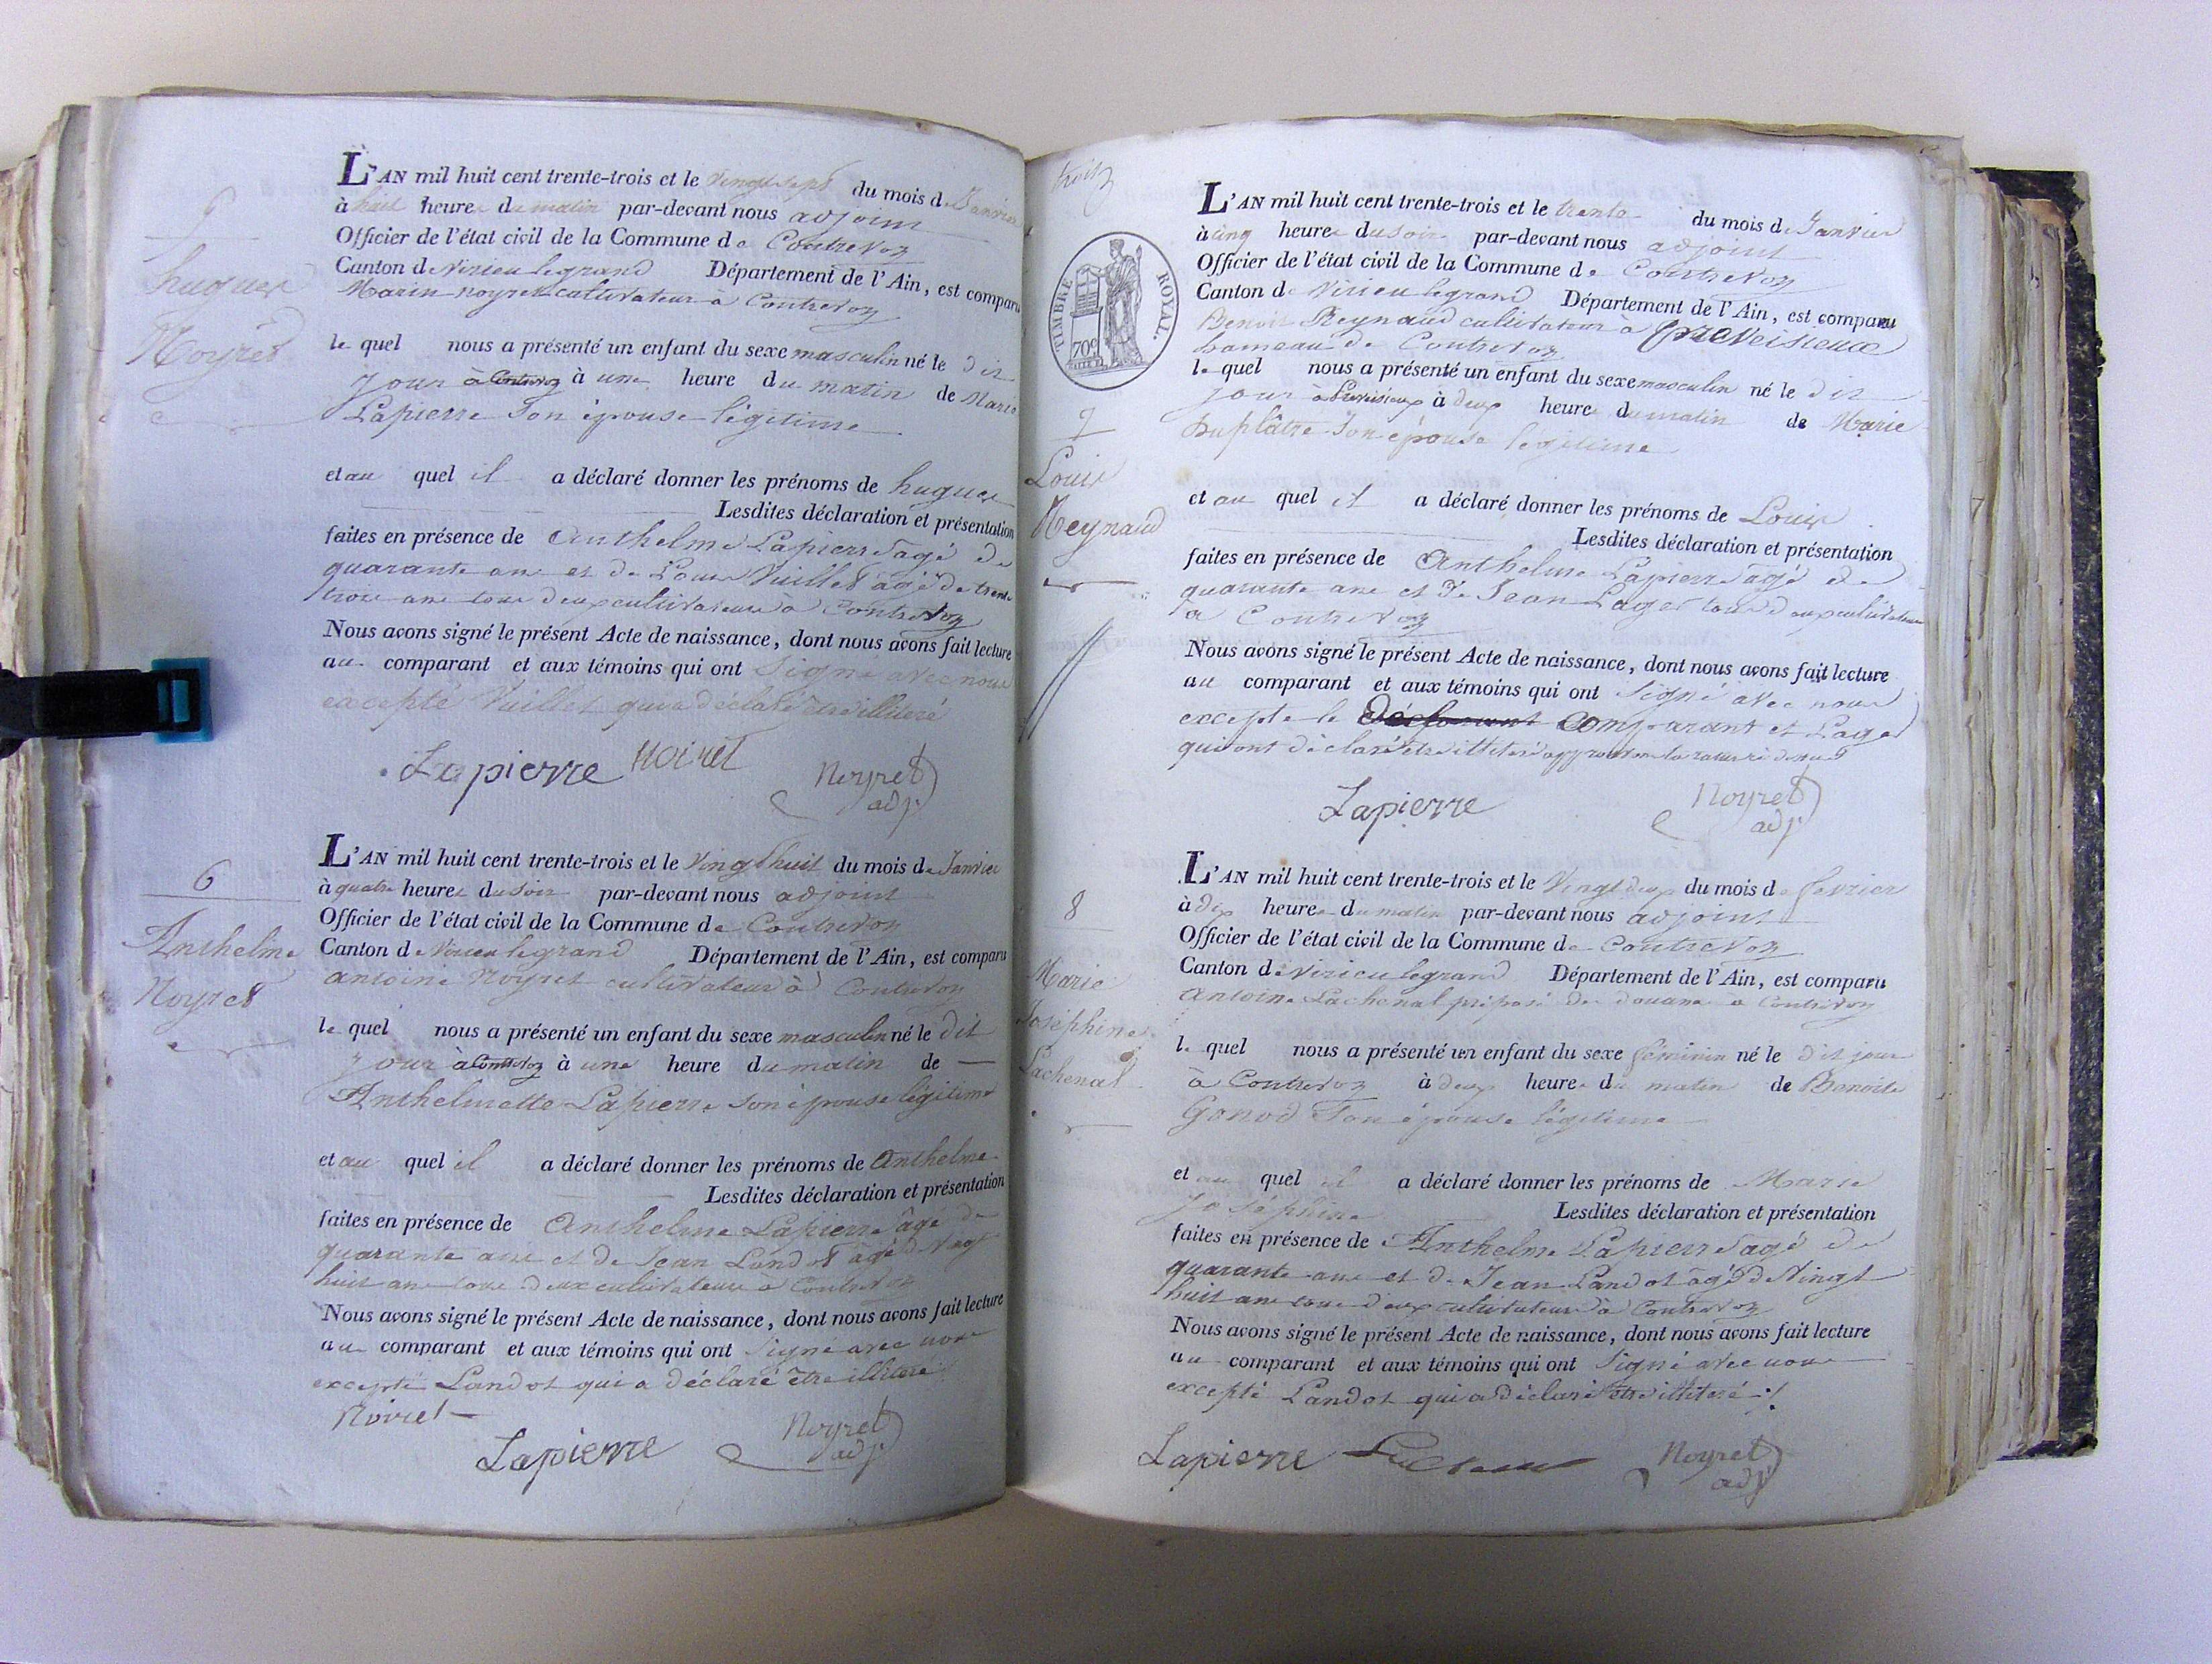 5
hugues
Noyret
L'AN mil huit cent trente-trois et le vingt sept du mois de Janvier
à huit heures du matin par-devant nous adjoint
Officier de l'état civil de la Commune de Contrevoz
Canton de Virieu legrand Département de l'Ain, est comparu
Marin noyret cultivateur à Contrevoz
le quel nous a présenté un enfant du sexe masculin né le dit
jour à Contrevoz à une heure du matin de Marie
Lapierre Son épouse légitime
et au quel il a déclaré donner les prénoms de hugues
Lesdites déclaration et présentation
faites en présence de Anthelme Lapierre agé de
quarante ans et de Louis Vuillet agé de trente
trois ans tous deux cultivateurs à Contrevoz
Nous avons signé le présent Acte de naissance, dont nous avons fait lecture
au comparant et aux témoins qui ont Signé avec nous
excepté Vuillet qui a déclaré être illiteré
Lapierre Noiret Noyret
adj.
6
Anthelme
Noyret
L'AN mil huit cent trente-trois et le Vingt huit du mois de Janvier
à quatre heures du soir par-devant nous adjoint
Officier de l'état civil de la Commune de Contrevoz
Canton de Virieu legrand Département de l'Ain, est comparu
antoine Noyret cultivateur à Contrevoz
le quel nous a présenté un enfant du sexe masculin né le dit
jour à Contrevoz à une heure du matin de
Anthelmette Lapierre son épouse légitime
et au quel il a déclaré donner les prénoms de Anthelme
Lesdites déclaration et présentation
faites en présence de Anthelme Lapierre âgé de
quarante ans et de Jean Landot âgé de vingt
huit ans tous deux cultivateurs à Contrevoz
Nous avons signé le présent Acte de naissance, dont nous avons fait lecture
au comparant et aux témoins qui ont Signé avec nous
excepté Landot qui a déclaré être illiteré
Noiret
Lapierre Noyret
adj.
trois
TIMBRE ROYAL.
70c
7
Louis
Reynaud
L'AN mil huit cent trente-trois et le trente du mois de Janvier
à cinq heures du soir par-devant nous adjoint
Officier de l'état civil de la Commune de Contrevoz
Canton de Virieu legrand Département de l'Ain, est comparu
Benoit Reynaud cultivateur à Preveisieux
hameau de Contrevoz
le quel nous a présenté un enfant du sexe masculin né le dit
jour à Preveisieux à deux heures du matin de Marie
Duplâtre Son épouse légitime
et au quel il a déclaré donner les prénoms de Louis
Lesdites déclaration et présentation
faites en présence de Anthelme Lapierre agé de
quarante ans et de Jean Lager tous deux cultivateurs
à Contrevoz
Nous avons signé le présent Acte de naissance, dont nous avons fait lecture
au comparant et aux témoins qui ont Signé avec nous
excepte le comparant et Lager
qui ont déclaré être illiteré approuvons la rature ci dessus
Lapierre Noyret
adj.
8
Marie
Joséphine
Lachenal
L'AN mil huit cent trente-trois et le Vingt deux du mois de fevrier
à dix heures du matin par-devant nous adjoint
Officier de l'état civil de la Commune de Contrevoz
Canton de Virieu legrand Département de l'Ain, est comparu
Antoine Lachenal préposé des douanes à Contrevoz
le quel nous a présenté un enfant du sexe féminin né le dit jour
à Contrevoz à deux heures du matin de Benoite
Gonod Son épouse légitime
et au quel il a déclaré donner les prénoms de Marie
joséphine Lesdites déclaration et présentation
faites en présence de Anthelme Lapierre agé de
quarante ans et de Jean Landot âgé de Vingt
huit ans tous deux cultivateurs à Contrevoz
Nous avons signé le présent Acte de naissance, dont nous avons fait lecture
au comparant et aux témoins qui ont Signé avec nous
excepté Landot qui a déclaré être illiteré
Lapierre Noyret
adj